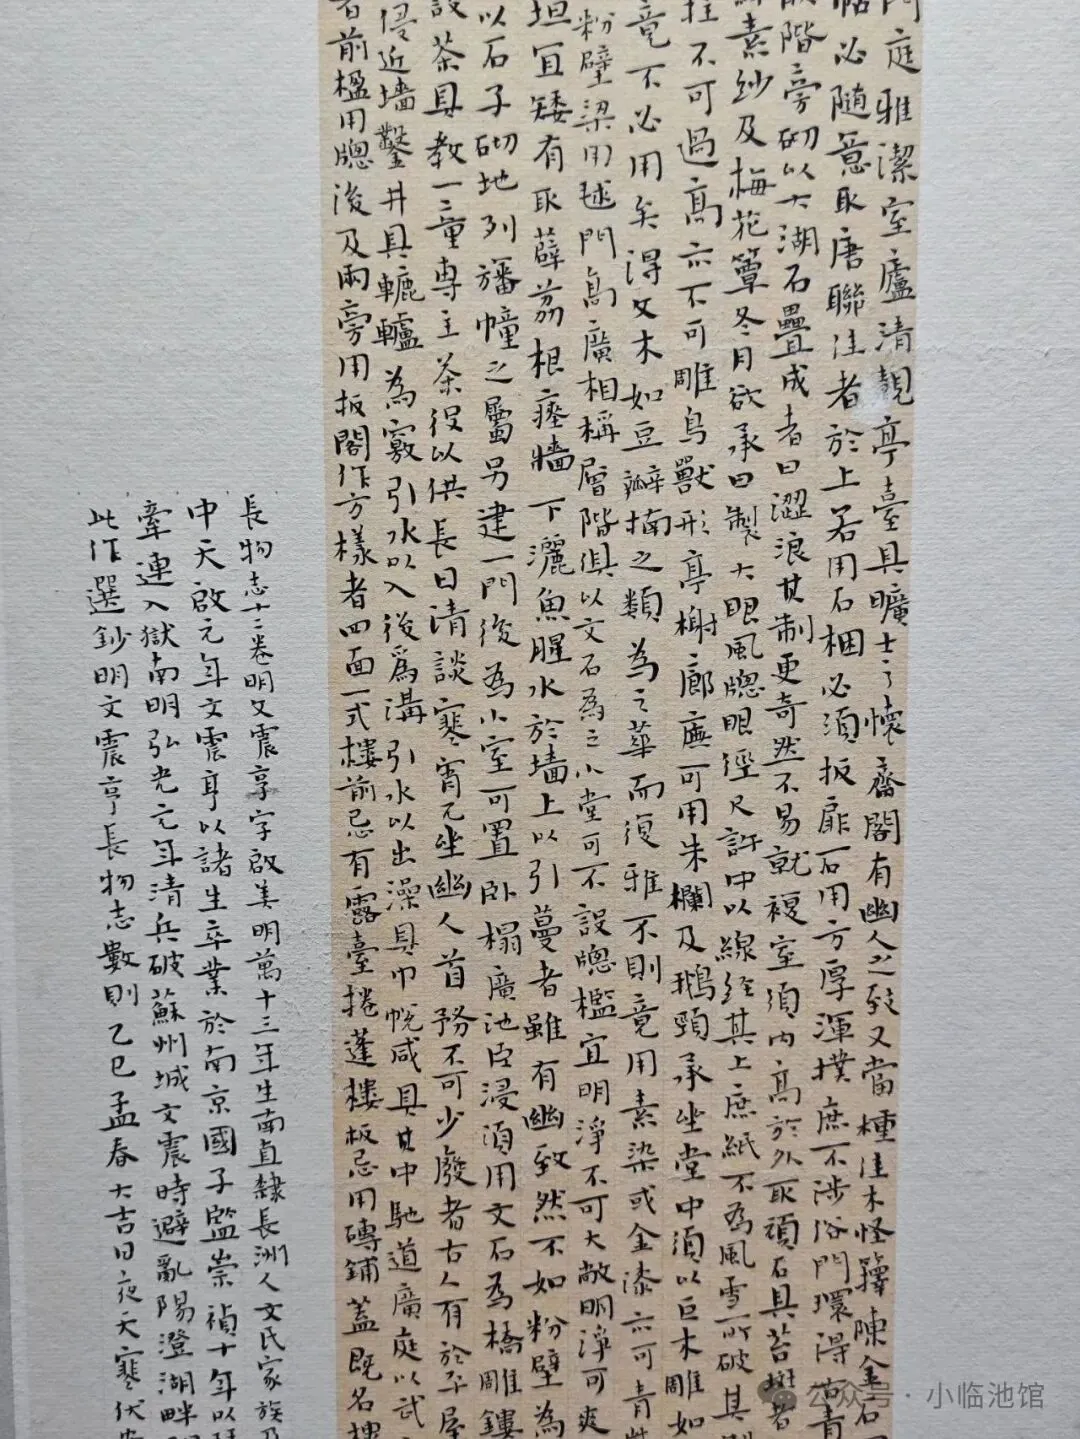 門庭雅潔室廬清靚亭臺具曠士之懷齋閣有幽人之致又當種佳木怪籜陳金石
帖必隨意取唐聯佳者於上若用石梱必須扳扉石用方厚渾撲庶不涉俗門環得
階旁砌以太湖石疊成者曰澀浪其制更奇然不易就複室須內高於外取頑石具苔斑者
素紗及梅花簟冬月欲承日製大眼風牕眼徑尺許中以線經其上庶紙不為風雪所破其
柱不可過高亦不可雕鳥獸形亭榭廊廡可用朱欄及鵝頸承坐堂中須以巨木雕如
竟不必用矣得文木如豆瓣楠之類為之華而復雅不則竟用素染或金漆亦可青
粉壁梁用毬門高廣相稱層階俱以文石為之小堂可不設牕檻宜明淨不可大敞明淨可爽
垣宜矮有取薜荔根瘞牆下灑魚腥水於墻上以引蔓者雖有幽致然不如粉壁為
以石子砌地列旛幢之屬另建一門後為小室可置卧榻廣池臣浸須用文石為橋雕鏤
設茶具教一童專主茶役以供長日清談寒宵兀坐幽人首務不可少廢者古人有於平屋
侵近墻鑿井具轆轤為竅引水以入後為溝引水以出澡具巾帨咸具其中馳道廣庭以武
者前楹用牕後及兩旁用扳閣作方樣者四面一式樓前忌有露臺捲蓬樓板忌用磚鋪蓋既名樓
長物志十二卷明文震亨字啟美明萬十三年生南直隸長洲人文氏家族
中天啟元年文震亨以諸生卒業於南京國子監崇禎十年以
牽連入獄南明弘光元年清兵破蘇州城文震時避亂陽澄湖畔
此作選鈔明文震亨長物志數則乙巳孟春大吉日夜天寒伏
公众号·小临池馆